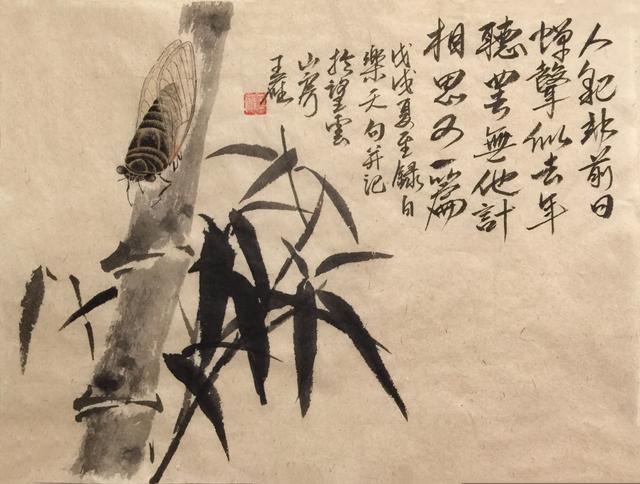 人貌非前日
蟬聲似去年
聽無他計
相思又一篇
戊戌夏至錄白
樂天句并記
於望雲
山房
王